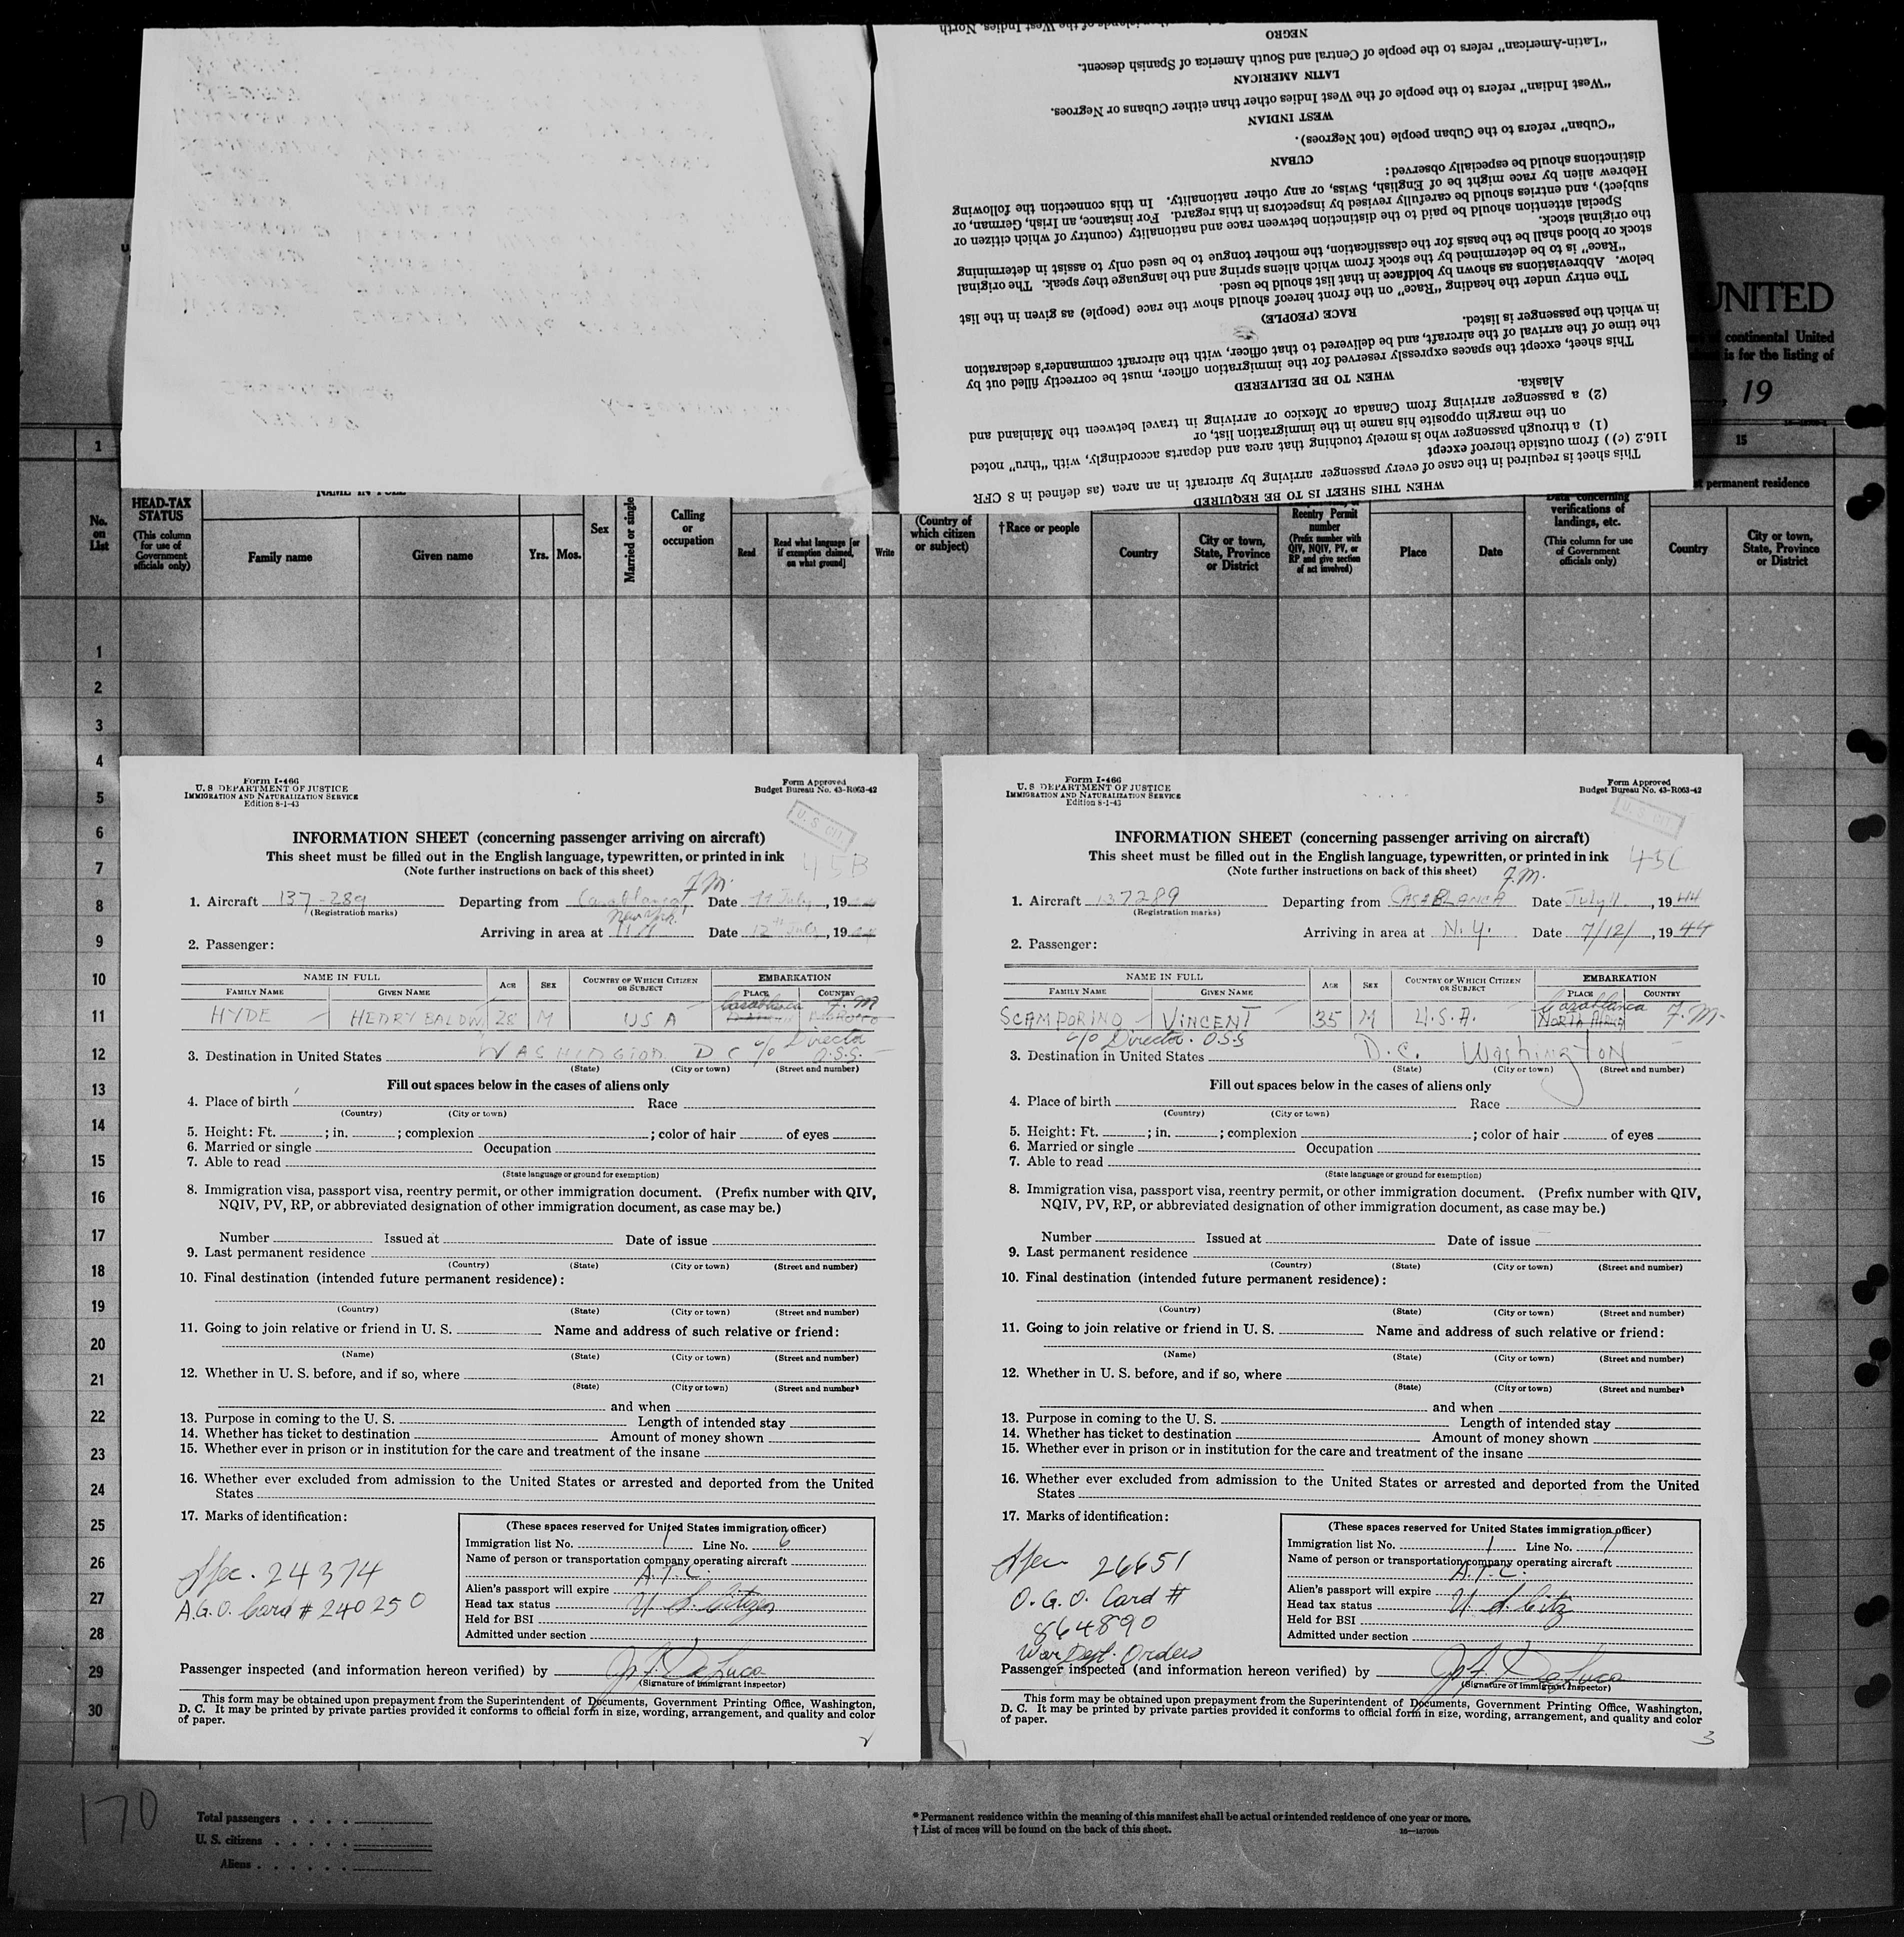 "Latin-American" refers to the people of Central and South America of Spanish descent.
NEGRO
LATIN AMERICAN
"West Indian" refers to the people of the West Indies other than either Cubans or Negroes.
WEST INDIAN
"Cuban" refers to the Cuban people (not Negroes).
CUBAN
distinctions should be especially observed:
Hebrew alien by race might be of English, Swiss, or any other nationality. In this connection the following
subject), and entries should be carefully revised by inspectors in this regard. For instance, an Irish, German, or
Special attention should be paid to the distinction between race and nationality (country of which citizen or
the original stock.
stock or blood shall be the basis for the classification, the mother tongue to be used only to assist in determining
"Race" is to be determined by the stock from which aliens spring and the language they speak. The original
below. Abbreviations as shown by boldface in that list should be used.
The entry under the heading "Race" on the front hereof should show the race (people) as given in the list
RACE (PEOPLE)
in which the passenger is listed.
the time of the arrival of the aircraft, and be delivered to that officer, with the aircraft commander's declaration
This sheet, except the spaces expressly reserved for the immigration officer, must be correctly filled out by
WHEN TO BE DELIVERED
Alaska.
(2) a passenger arriving from Canada or Mexico or arriving in travel between the Mainland and
on the margin opposite his name in the immigration list, or
(1) a through passenger who is merely touching that area and departs accordingly, with "thru" noted
116.2 (c)) from outside thereof except
This sheet is required in the case of every passenger arriving by aircraft in an area (as defined in 8 CFR
WHEN THIS SHEET IS TO BE REQUIRED
UNITED
continental United
is for the listing of
, 19
1
15
No. on List
HEAD-TAX STATUS
(This column for use of Government officials only)
NAME IN FULL
Family name
Given name
Yrs.
Mos.
Sex
Married or single
Calling or occupation
Read
Read what language [or if exemption claimed, on what ground]
Write
(Country of which citizen or subject)
†Race or people
Country
City or town, State, Province or District
Reentry Permit number
(Prefix number with QIV, NQIV, PV, or RP and give section of act involved)
Place
Date
Data concerning verifications of landings, etc.
(This column for use of Government officials only)
permanent residence
Country
City or town, State, Province or District
1
2
3
4
5
6
7
8
9
10
11
12
13
14
15
16
17
18
19
20
21
22
23
24
25
26
27
28
29
30
Form I-466
U. S DEPARTMENT OF JUSTICE
IMMIGRATION AND NATURALIZATION SERVICE
Edition 8-1-43
Form Approved
Budget Bureau No. 43-R063-42
U. S. CIT.
INFORMATION SHEET (concerning passenger arriving on aircraft)
This sheet must be filled out in the English language, typewritten, or printed in ink
45B
(Note further instructions on back of this sheet)
F.M.
1. Aircraft 137-289 Departing from Casablanca Date 11 July, 1944
(Registration marks)
New York
Arriving in area at Date 12th July, 1944
2. Passenger:
NAME IN FULL
FAMILY NAME
GIVEN NAME
AGE
SEX
COUNTRY OF WHICH CITIZEN OR SUBJECT
EMBARKATION
PLACE
COUNTRY
Casablanca F.M
HYDE HENRY BALDW 28 M USA MOROCCO
3. Destination in United States WASHINGTON D C c/o Director O.S.S.
(State) (City or town) (Street and number)
Fill out spaces below in the cases of aliens only
4. Place of birth Race
(Country) (City or town)
5. Height: Ft. ; in. ; complexion ; color of hair of eyes
6. Married or single Occupation
7. Able to read
(State language or ground for exemption)
8. Immigration visa, passport visa, reentry permit, or other immigration document. (Prefix number with QIV,
NQIV, PV, RP, or abbreviated designation of other immigration document, as case may be.)
Number Issued at Date of issue
9. Last permanent residence
(Country) (State) (City or town) (Street and number)
10. Final destination (intended future permanent residence):
(Country) (State) (City or town) (Street and number)
11. Going to join relative or friend in U. S. Name and address of such relative or friend:
(Name) (State) (City or town) (Street and number)
12. Whether in U. S. before, and if so, where
(State) (City or town) (Street and number)
and when
13. Purpose in coming to the U. S. Length of intended stay
14. Whether has ticket to destination Amount of money shown
15. Whether ever in prison or in institution for the care and treatment of the insane
16. Whether ever excluded from admission to the United States or arrested and deported from the United
States
17. Marks of identification:
(These spaces reserved for United States immigration officer)
Immigration list No. 1 Line No. 6
Name of person or transportation company operating aircraft
A.T.C.
Alien's passport will expire
Head tax status U. S. Citizen
Held for BSI
Admitted under section
Spec. 24374
A.G.O. Card # 240250
Passenger inspected (and information hereon verified) by J. F. DeLuca
(Signature of immigrant inspector)
This form may be obtained upon prepayment from the Superintendent of Documents, Government Printing Office, Washington,
D. C. It may be printed by private parties provided it conforms to official form in size, wording, arrangement, and quality and color
of paper.
2
Form I-466
U. S DEPARTMENT OF JUSTICE
IMMIGRATION AND NATURALIZATION SERVICE
Edition 8-1-43
Form Approved
Budget Bureau No. 43-R063-42
U. S. CIT.
INFORMATION SHEET (concerning passenger arriving on aircraft)
This sheet must be filled out in the English language, typewritten, or printed in ink
45C
(Note further instructions on back of this sheet)
F.M.
1. Aircraft 137289 Departing from CASABLANCA Date July 11, 1944
(Registration marks)
Arriving in area at N.Y. Date 7/12/, 1944
2. Passenger:
NAME IN FULL
FAMILY NAME
GIVEN NAME
AGE
SEX
COUNTRY OF WHICH CITIZEN OR SUBJECT
EMBARKATION
PLACE
COUNTRY
Casablanca
SCAMPORINO VINCENT 35 M U.S.A. NORTH AFRICA F.M.
c/o Director. O.S.S
3. Destination in United States D.C. Washington
(State) (City or town) (Street and number)
Fill out spaces below in the cases of aliens only
4. Place of birth Race
(Country) (City or town)
5. Height: Ft. ; in. ; complexion ; color of hair of eyes
6. Married or single Occupation
7. Able to read
(State language or ground for exemption)
8. Immigration visa, passport visa, reentry permit, or other immigration document. (Prefix number with QIV,
NQIV, PV, RP, or abbreviated designation of other immigration document, as case may be.)
Number Issued at Date of issue
9. Last permanent residence
(Country) (State) (City or town) (Street and number)
10. Final destination (intended future permanent residence):
(Country) (State) (City or town) (Street and number)
11. Going to join relative or friend in U. S. Name and address of such relative or friend:
(Name) (State) (City or town) (Street and number)
12. Whether in U. S. before, and if so, where
(State) (City or town) (Street and number)
and when
13. Purpose in coming to the U. S. Length of intended stay
14. Whether has ticket to destination Amount of money shown
15. Whether ever in prison or in institution for the care and treatment of the insane
16. Whether ever excluded from admission to the United States or arrested and deported from the United
States
17. Marks of identification:
(These spaces reserved for United States immigration officer)
Immigration list No. 1 Line No. 7
Name of person or transportation company operating aircraft
A.T.C.
Alien's passport will expire
Head tax status U. S. Citz
Held for BSI
Admitted under section
Spec 26651
O.G.O. Card #
864890
War Dept. Orders
Passenger inspected (and information hereon verified) by J. F. DeLuca
(Signature of immigrant inspector)
This form may be obtained upon prepayment from the Superintendent of Documents, Government Printing Office, Washington,
D. C. It may be printed by private parties provided it conforms to official form in size, wording, arrangement, and quality and color
of paper.
3
170
Total passengers
U. S. citizens
Aliens
* Permanent residence within the meaning of this manifest shall be actual or intended residence of one year or more.
† List of races will be found on the back of this sheet.